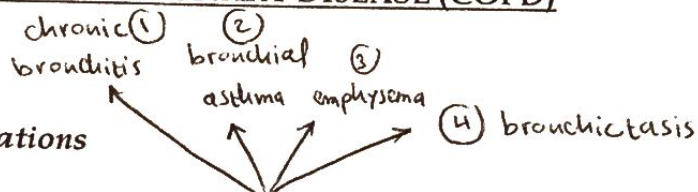 DISEASE (COPD)
chronic ① ②
bronchitis bronchial ③
asthma emphysema
④ bronchictasis
ations